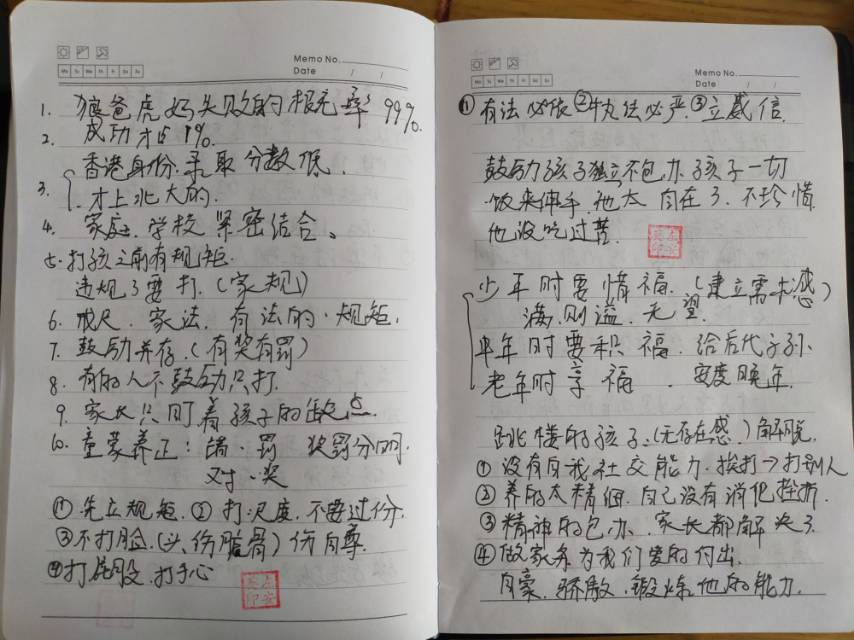 Memo No.
Date / /
Mo Tu We Th Fr Sa Su
1. 狼爸虎妈失败的概率99%.
2. 成功才占1%.
香港身份.录取分数低.
3. 才上北大的.
4. 家庭.学校紧密结合。
5. 打孩之前有规矩.
违规了要打.(家规)
6. 戒尺.家法.有法的.规矩.
7. 鼓励并存.(有奖有罚)
8. 有的人不鼓励只打.
9. 家长只盯着孩子的缺点.
10. 童蒙养正:错.罚 奖罚分明.
对.奖
①先立规矩.②打.尺度.不要过份.
③不打脸.(头.伤脑骨)伤自尊.
④打屁股.打手心
Memo No.
Date / /
Mo Tu We Th Fr Sa Su
①有法必依②执法必严.③立威信.
鼓励孩子独立不包办孩子一切
饭来伸手.他太自在了.不珍惜.
他没吃过苦.
少年时要惜福.(建立需求感)
满则溢.无望.
中年时要积福.给后代子孙.
老年时享福.安度晚年.
跳楼的孩子.(无存在感.)解脱.
①没有自我社交能力.挨打→打别人
②养的太精细.自己没有消化挫折.
③精神的包办.家长都解决了.
④做家务为我们家的付出.
自豪.骄傲.锻炼他的能力.